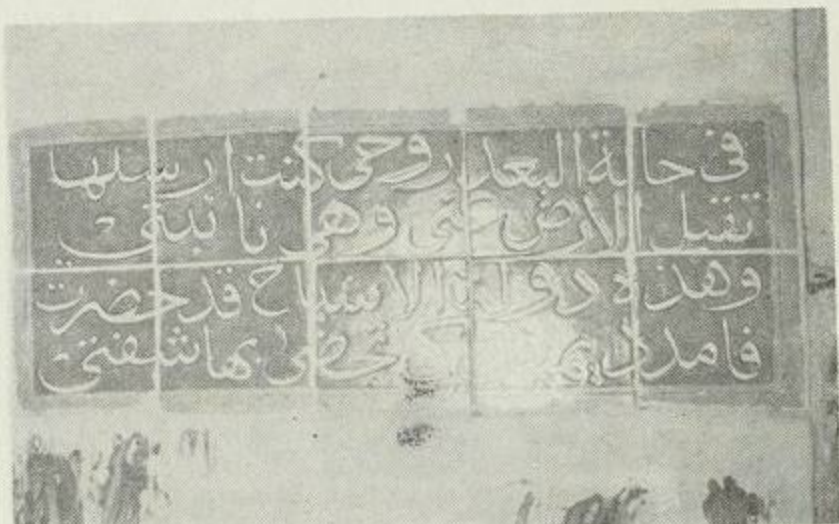 في حالة البعد روحى كنت ارسلها
تقبل الارض عنى وهى نائبتي
وهذه دولة الاشباح قد حضرت
فامدد تحظى بها شفتي